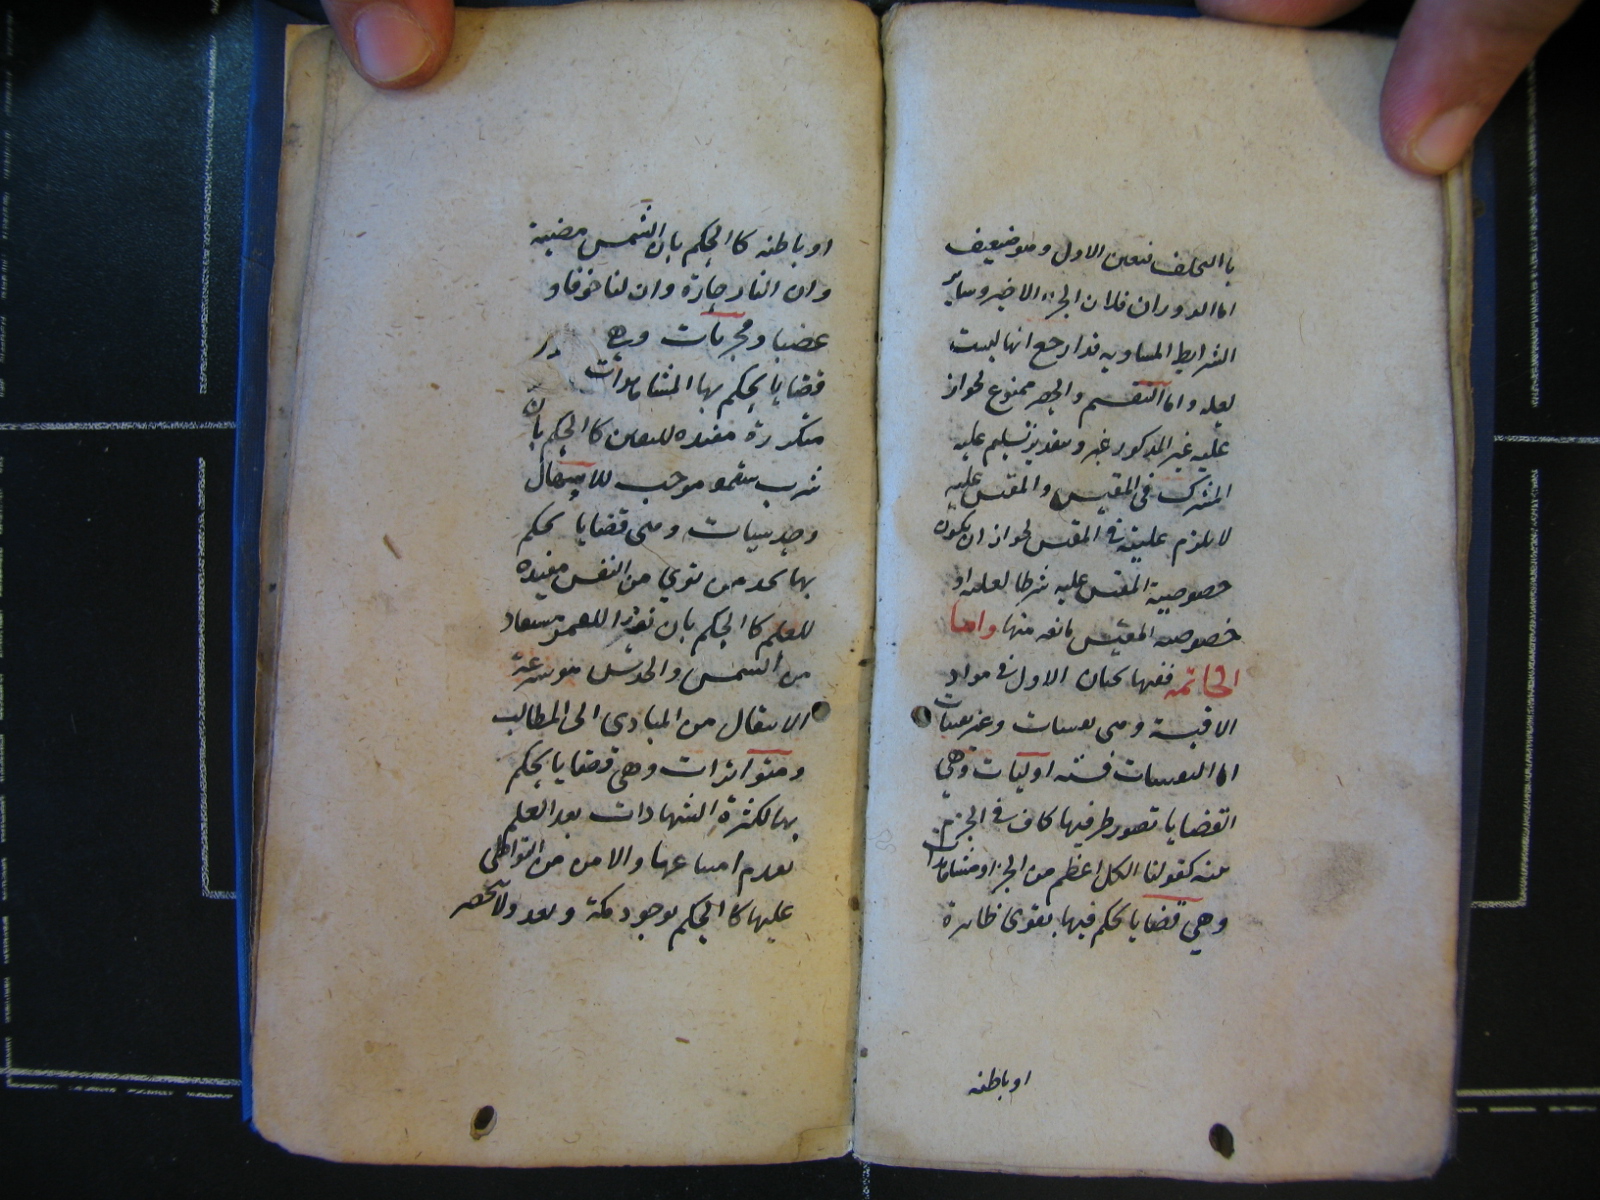 باالتخلف فتعين الاول وهو ضعيف
اما الدوران فلان الجزء الاخير وساير
الشرايط المساوية مدار مع انها ليست
لعلة واما التقسيم والحصر ممنوع لجواز
علية غير المذكور غير وبتقدير تسليم علية
المشترك في المقيس والمقيس عليه
لا يلزم عليته في المقيس لجواز ان يكون
خصوصية المقيس عليه شرطا لعلة او
خصوصية المقيس مانعة منها واما
الخاتمة ففيها بحثان الاول في مواد
الاقيسة وهى يقينيات وغير يقينيات
اما اليقينيات فستة اوليات وهي
القضايا تصور طرفيها كاف في الجزم
منه كقولنا الكل اعظم من الجزء ومشاهدات
وهي قضايا يحكم فيها بقوى ظاهرة
او باطنه
او باطنه كا الحكم بان الشمس مضيئة
وان النار حارة وان لنا خوفا و
غضبا ومجربات وهي
قضايا يحكم بها المشاهدات
متكررة مفيدة لليقين كا الحكم بان
شرب سقمو موجب للاسهال
وحدسيات وهى قضايا يحكم
بها بحدس قوي من النفس مفيدة
للعلم كا الحكم بان نور القمر مستفاد
من الشمس والحدس هو سرعة
الانتقال من المبادى الى المطالب
ومتواترات وهي قضايا يحكم
بها لكثرة الشهادات بعد العلم
بعدم امتناعها والامن من التواطئ
عليها كا الحكم بوجود مكة وبغد ولا ينحصر